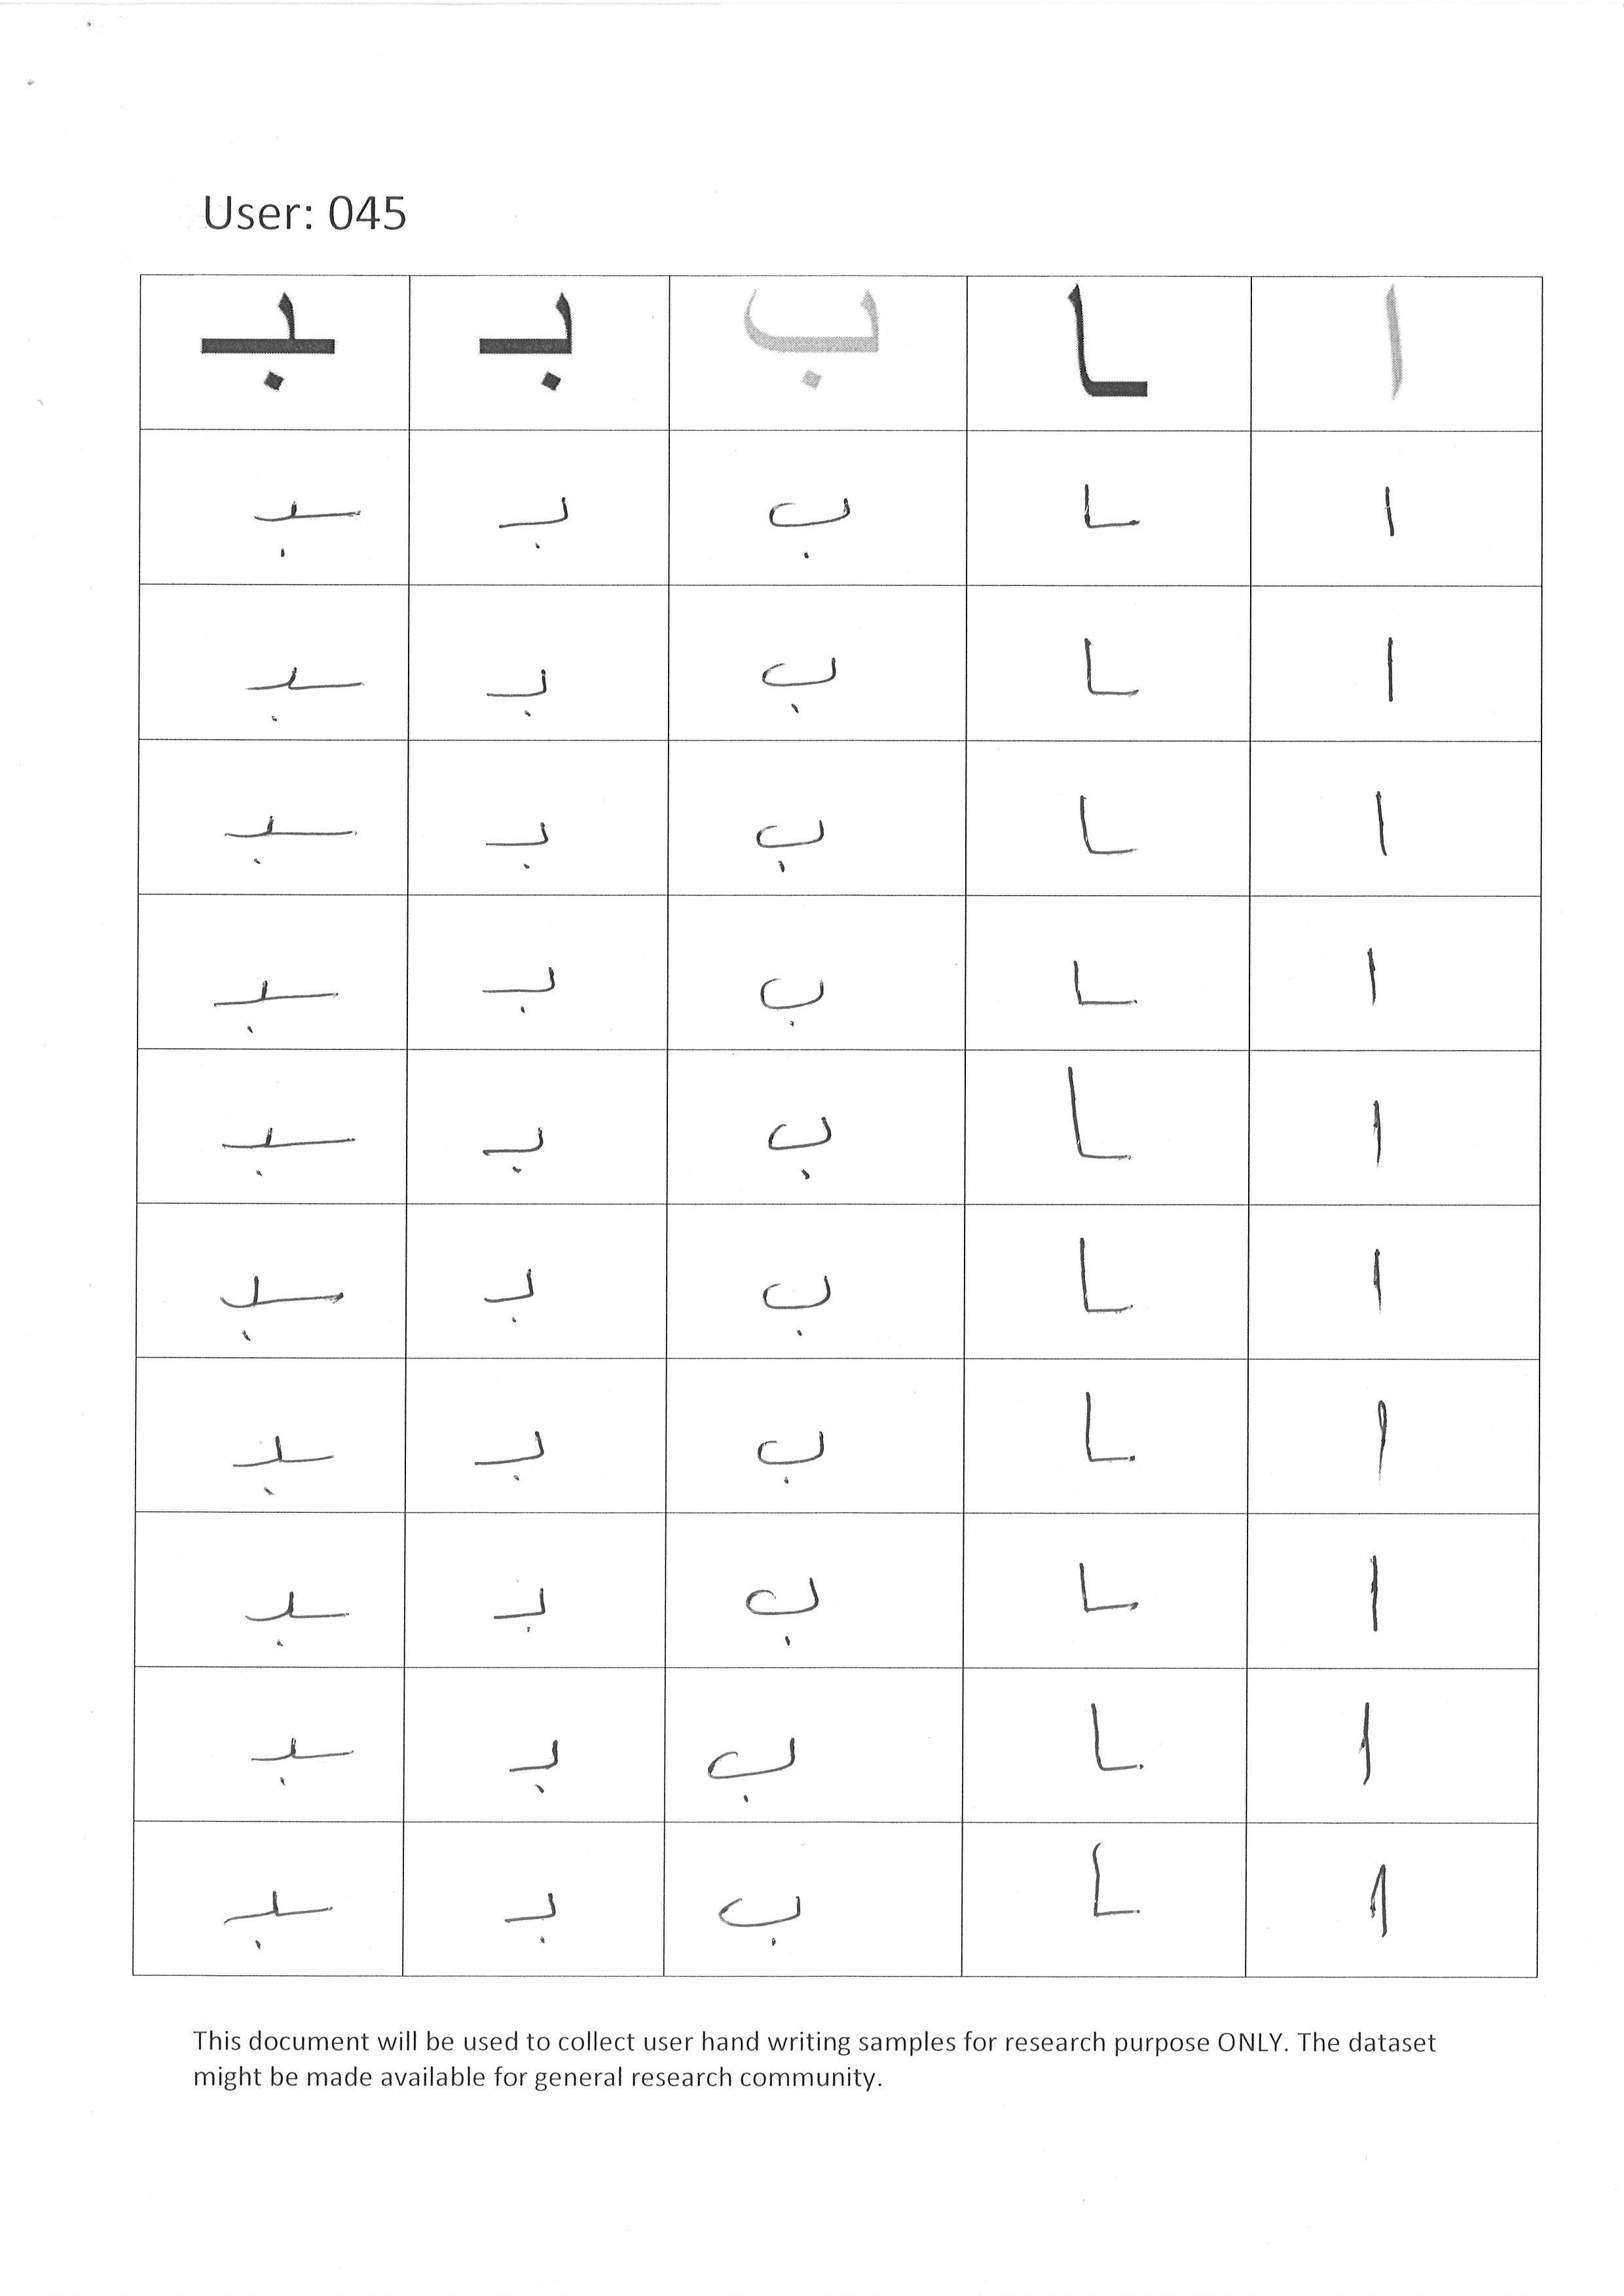 User: 045
ا ـا ب بـ ـبـ
ا ـا ب بـ ـبـ
ا ـا ب بـ ـبـ
ا ـا ب بـ ـبـ
ا ـا ب بـ ـبـ
ا ـا ب بـ ـبـ
ا ـا ب بـ ـبـ
ا ـا ب بـ ـبـ
ا ـا ب بـ ـبـ
ا ـا ب بـ ـبـ
ا ـا ب بـ ـبـ
This document will be used to collect user hand writing samples for research purpose ONLY. The dataset
might be made available for general research community.